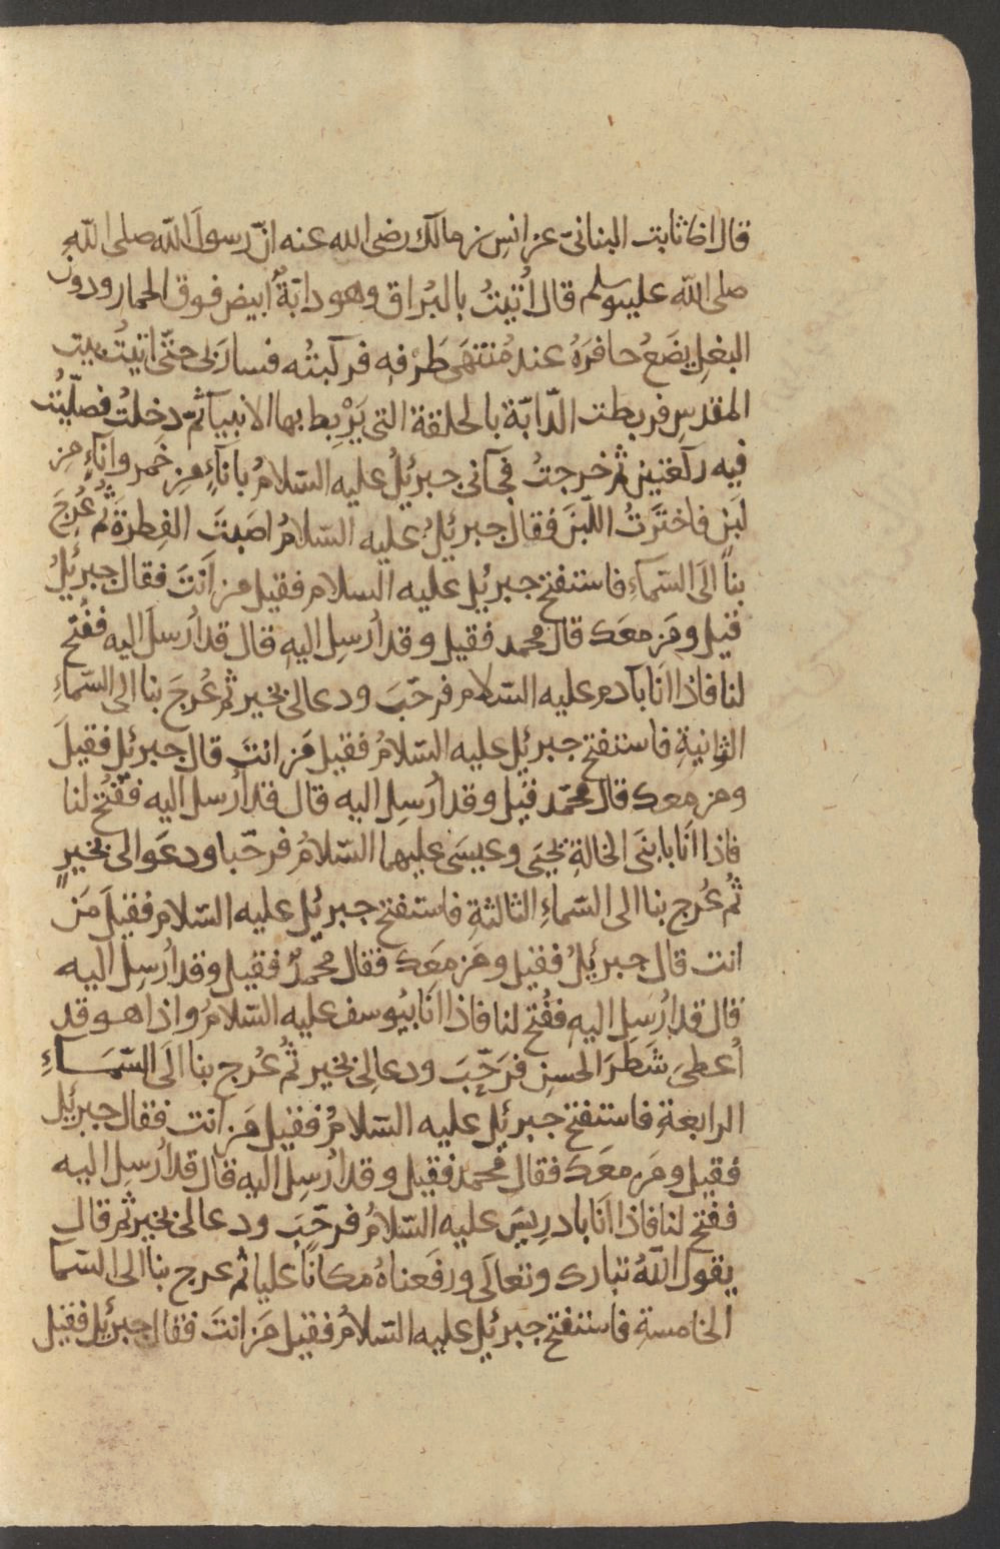 قال انا ثابت البنانىّ عن انسِ بن مالك رضى الله عنه انّ رسولَ اللّه صلى اللّه
صلى اللّه عليه وسلم قال اُتيتُ بالبُراق وهو دابّةٌ ابيض فوق الحمار ودون
البغلِ يضَعُ حافرَهُ عند مُنتهَى طَرْفِه فركبتُه فسار بى حتّى اتيتُ بيت
المقدسِ فربطت الدّابّة بالحلقة التى يَرْبِط بها الانبيآ ثمّ دخلتُ فصلّيتُ
فيه ركعتين ثم خرجتُ فجآنى جبرئيلُ عليه السّلامُ باناءٍ من خَمر وانآءٍ من
لبَن فاختَرتُ اللّبنَ فقال جبرئيلُ عليه السّلامُ اصَبتَ الفِطرَةَ ثم عُرِجَ
بناً الَى السّماءِ فاستفتح جبرئيل عليه السلام فقيل من اَنتَ فقال جبرئيلُ
قيل ومَن معَك قال محمد فقيل وقد اُرسِل اليهِ قال قد اُرسلَ اليه ففُتح
لنا فاذا انَا بآدم عليه السّلام فرحّبَ ودعا لى بخير ثم عُرجَ بنا الى السّماءِ
الثانيةِ فاستفتح جبرئيل عليه السّلامُ فقيل مَن انتَ قال جبرئيل فقيلَ
ومن معك قال محمّد قيل وقد اُرسِل اليه قال قد اُرسل اليه ففُتح لنا
فاذا انَا بابنَى الخالةِ يحيَى وعيسَى عليهما السّلامُ فرحّبا ودعَوا لى بخيرٍ
ثُم عُرج بنا الى السّماءِ الثالثةِ فاستفتح جبرئيل عليه السّلام فقيلَ مَن
انت قال جبرئيلُ فقيل ومَن معَك فقال محمّدٌ فقيل وقد اُرسِل اليه
قال قد اُرسِل اليه ففُتح لنا فاذا انَا بيُوسف عليه السّلامُ واذا هو قد
اُعطىَ شَطَرَ الحسنِ فرَحّبَ ودعا لِى بخير ثُم عُرج بنا الَى السّمَاءِ
الرابعةِ فاستفتح جبرئيل عليه السّلامُ فقيل مَن اَنت فقال جبرئيل
فقيل ومَن معَكَ فقال محمد فقيل وقد اُرسِل اليه قال قد اُرسِل اليه
ففتح لنا فاذا انَا بادريسَ عليه السّلامُ فرحّبَ ودعا لى بخير ثم قال
يقول اللّهُ تبارك وتعالَى ورفَعناهُ مكانًا عليا ثم عرج بنا الى السّما
الخامسةِ فاستفتح جبرئيل عليه السّلامُ فقيل مَن انتَ فقال جبرئيل فقيل